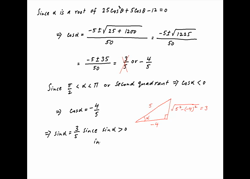 Since α is a root of 25cos²θ+5cosθ-12=0
⇒ cosα = (-5±√(25+1200))/50 = (-5±√1225)/50
= (-5±35)/50 = 3/5 or -4/5
Since π/2 < α < π or second quadrant ⇒ cosα < 0
⇒ cosα = -4/5
5
√(5²-(-4)²) = 3
α
-4
⇒ sinα = 3/5 since sinα > 0
in